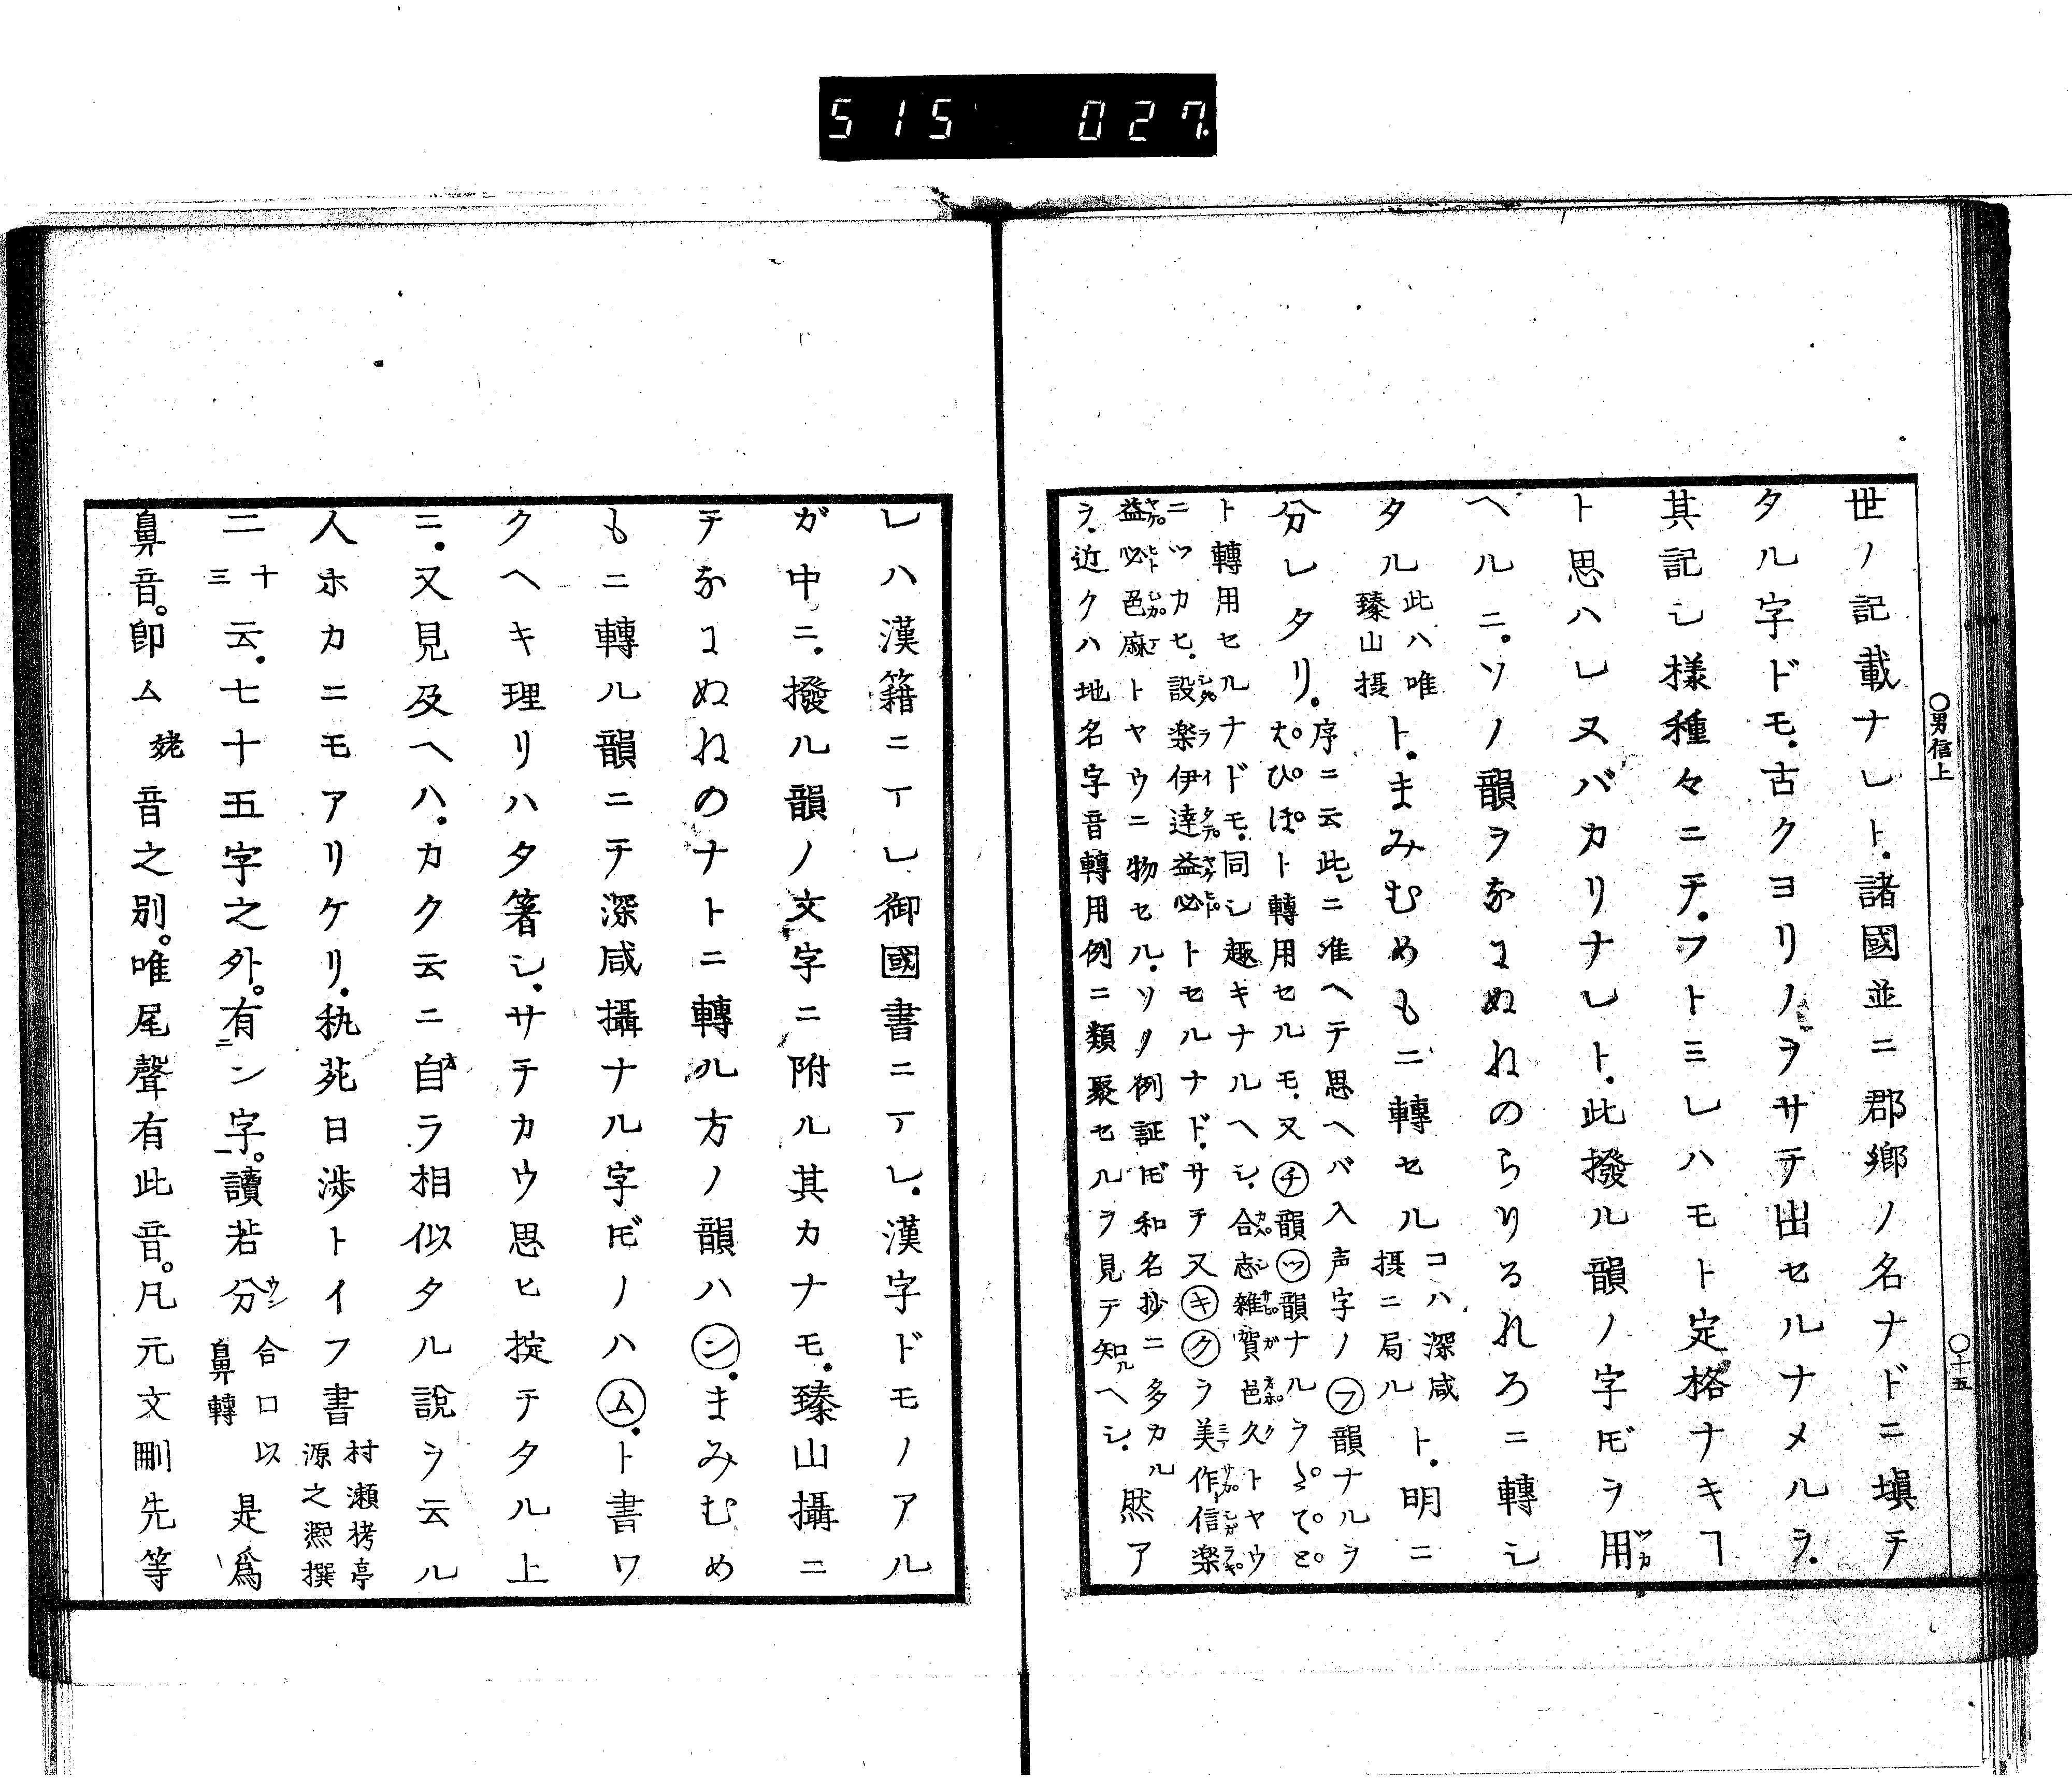 515 027.
〇男信上
〇十五
世ノ記載ナレト.諸國並ニ郡鄉ノ名ナドニ塡テ
タル字ドモ.古クヨリノヲサテ出セルナメルヲ.
其記シ様種々ニテ.フトミレハモト定格ナキヿ
ト思ハレヌバカリナレト.此撥ル韻ノ字𪜈ヲ用ツカ
ヘルニ.ソノ韻ヲなにぬねのらりるれろニ轉シ
タル此ハ唯臻山摂ト.まみむめもニ轉セルコハ深咸摂ニ局ルト.明ニ
分レタリ.
序ニ云此ニ准ヘテ思ヘバ入声字ノ㋫韻ナルヲ
ぱぴぽト轉用セルモ.又㋠韻㋡韻ナルヲぢつてと
ト轉用セルナドモ.同シ趣キナルヘシ.合志雜賀邑久トヤウ
ニツカヒ.設楽伊達益必トセルナド.サテ又㋖㋗ヲ美作信楽
益必邑麻トヤウニ物セル.ソノ例証𪜈和名抄ニ多カル
ヲ.近クハ地名字音轉用例ニ類聚セルヲ見テ知ルヘシ.
然ア
レハ漢籍ニアレ御國書ニアレ.漢字ドモノアル
ガ中ニ.撥ル韻ノ文字ニ附ル其カナモ.臻山攝ニ
テなにぬねのナトニ轉ル方ノ韻ハ㋑ン.まみむめ
もニ轉ル韻ニテ深咸攝ナル字𪜈ノハ㋰.ト書ワ
クヘキ理リハタ箸シ.サテカウ思ヒ掟テタル上
ニ.又見及ヘハ.カク云ニ自オラ相似タル說ヲ云ル
人ホカニモアリケリ.秇苑日渉トイフ書村瀬栲亭源之凞撰
二十三云.七十五字之外.有ニン字一.讀若分ウン合口以鼻轉是爲
鼻音.卽ム姥音之別.唯尾聲有此音.凡元文刪先等